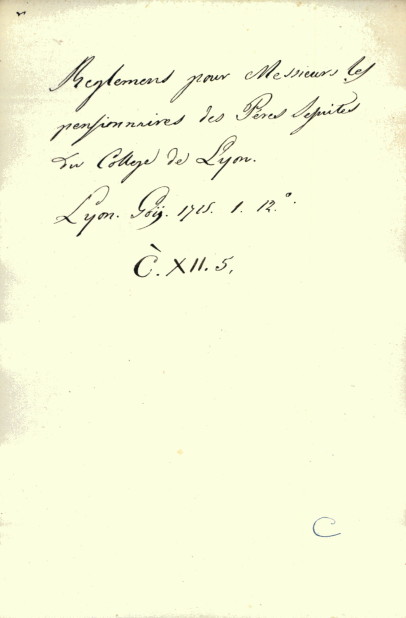 Reglemens pour Messieurs les
pensionnaires des Peres Jesuites
du College de Lyon.
Lyon. 1715. 1. 12.°
C. XII. 5.
C